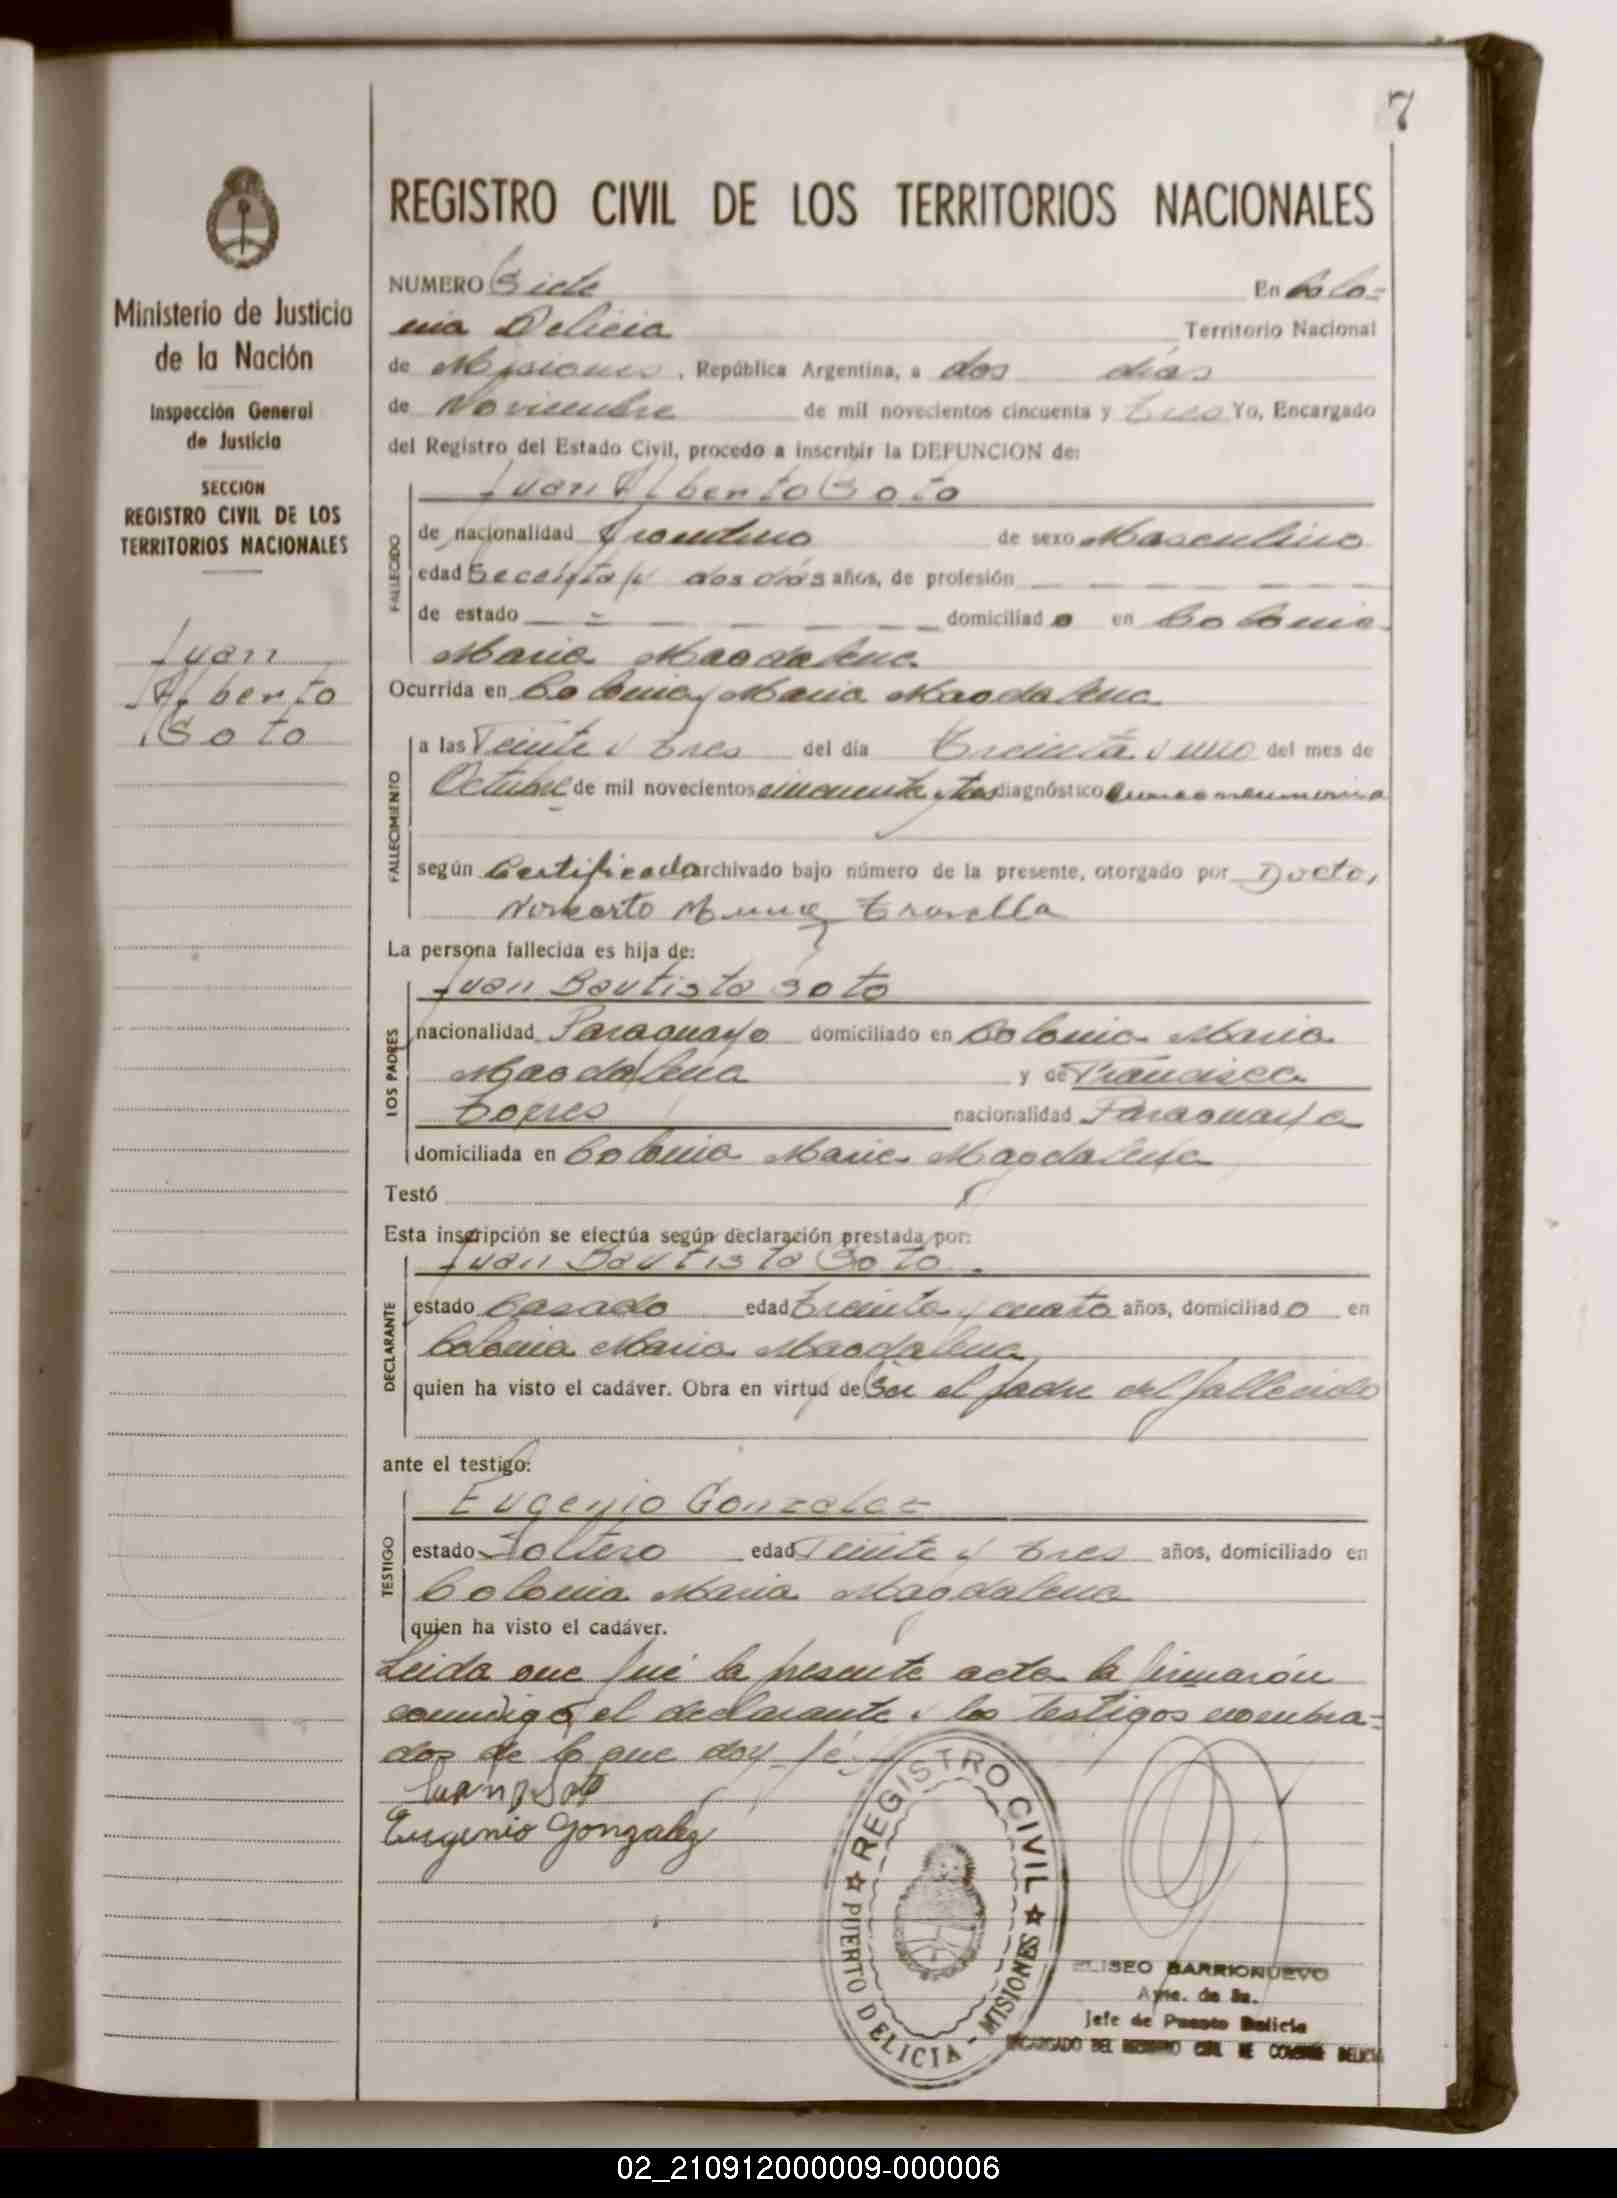 7
Ministerio de Justicia
de la Nación
Inspección General
de Justicia
SECCION
REGISTRO CIVIL DE LOS
TERRITORIOS NACIONALES
Juan
Alberto
Soto
REGISTRO CIVIL DE LOS TERRITORIOS NACIONALES
NUMERO Siete En Colo=
nia Delicia Territorio Nacional
de Misiones, República Argentina, a dos días
de Noviembre de mil novecientos cincuenta y tres Yo, Encargado
del Registro del Estado Civil, procedo a inscribir la DEFUNCION de:
Juan Alberto Soto
FALLECIDO
de nacionalidad Argentino de sexo Masculino
edad y dos días años, de profesión
de estado domiciliado en Colonia
Maria Magdalena
Ocurrida en Colonia Maria Magdalena
FALLECIMIENTO
a las Veinte y tres del día treinta y uno del mes de
Octubre de mil novecientos cincuenta y tres diagnóstico
según Certificado archivado bajo número de la presente, otorgado por Doctor
La persona fallecida es hija de:
Juan Bautista Soto
LOS PADRES
nacionalidad Paraguayo domiciliado en Colonia Maria
Magdalena y de Francisca
Torres nacionalidad Paraguaya
domiciliada en Colonia Maria Magdalena
Testó
Esta inscripción se efectúa según declaración prestada por:
Juan Bautista Soto
DECLARANTE
estado Casado edad treinta y cuatro años, domiciliado en
Colonia Maria Magdalena
quien ha visto el cadáver. Obra en virtud de Ser el padre del fallecido
ante el testigo:
Eugenio Gonzalez
TESTIGO
estado Soltero edad Veinte y tres años, domiciliado en
Colonia Maria Magdalena
quien ha visto el cadáver.
Leida que fué la presente acta la firmarón
conmigo, el declarante y los testigos nombra=
dos de lo que doy fé.
Juan B Soto
Eugenio Gonzalez
REGISTRO CIVIL
PUERTO DELICIA - MISIONES
ELISEO BARRIONUEVO
Ayte. de 2a.
Jefe de Puesto Delicia
ENCARGADO DEL REGISTRO CIVIL DE COLONIA DELICIA
02_210912000009-000006